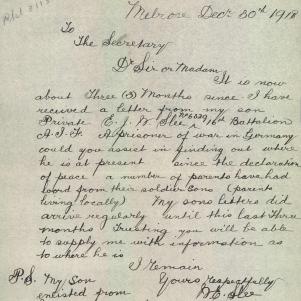 Melrose Decr 30th 1918
To
The Secretary
Dr Sir or Madam
It is now
about Three (3) Months since I have
received a letter from my son
Private E. J. W. Slee No 6039 16th Battalion
A.I.F. A prisoner of war in Germany
could you assist in finding out where
he is at present since the declaration
of peace a number of parents have had
word from their soldier sons (parents
living locally) My sons letters did
arrive regularly until this last Three
months Trusting you will be able
to supply me with information as
to where he is
I remain
P.S. My Son Yours respectfully
enlisted from W. E. Slee